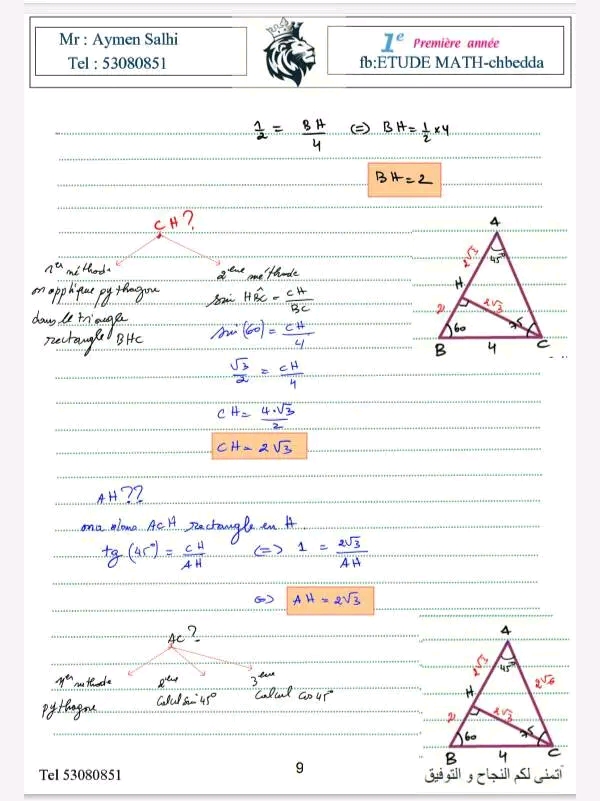 Mr : Aymen Salhi
Tel : 53080851
1e Première année
fb:ETUDE MATH-chbedda
1/2 = BH/4 (=) BH = 1/2 × 4
BH = 2
CH?
1er méthode
on applique pythagore
dans le triangle
rectangle BHC
2eme méthode
sin HB̂C = CH/BC
sin(60) = CH/4
√3/2 = CH/4
CH = 4·√3/2
CH = 2√3
A
45°
2√3
H
2√3
2
60
75
B
4
C
AH??
on a alors ACH rectangle en H.
tg(45°) = CH/AH (=) 1 = 2√3/AH
(=) AH = 2√3
AC?
1er méthode
pythagore
2eme
Calcul sin 45°
3eme
Calcul cos 45°
A
45°
2√3
2√6
H
2√3
2
60
75
B
4
C
Tel 53080851
9
أتمنى لكم النجاح و التوفيق